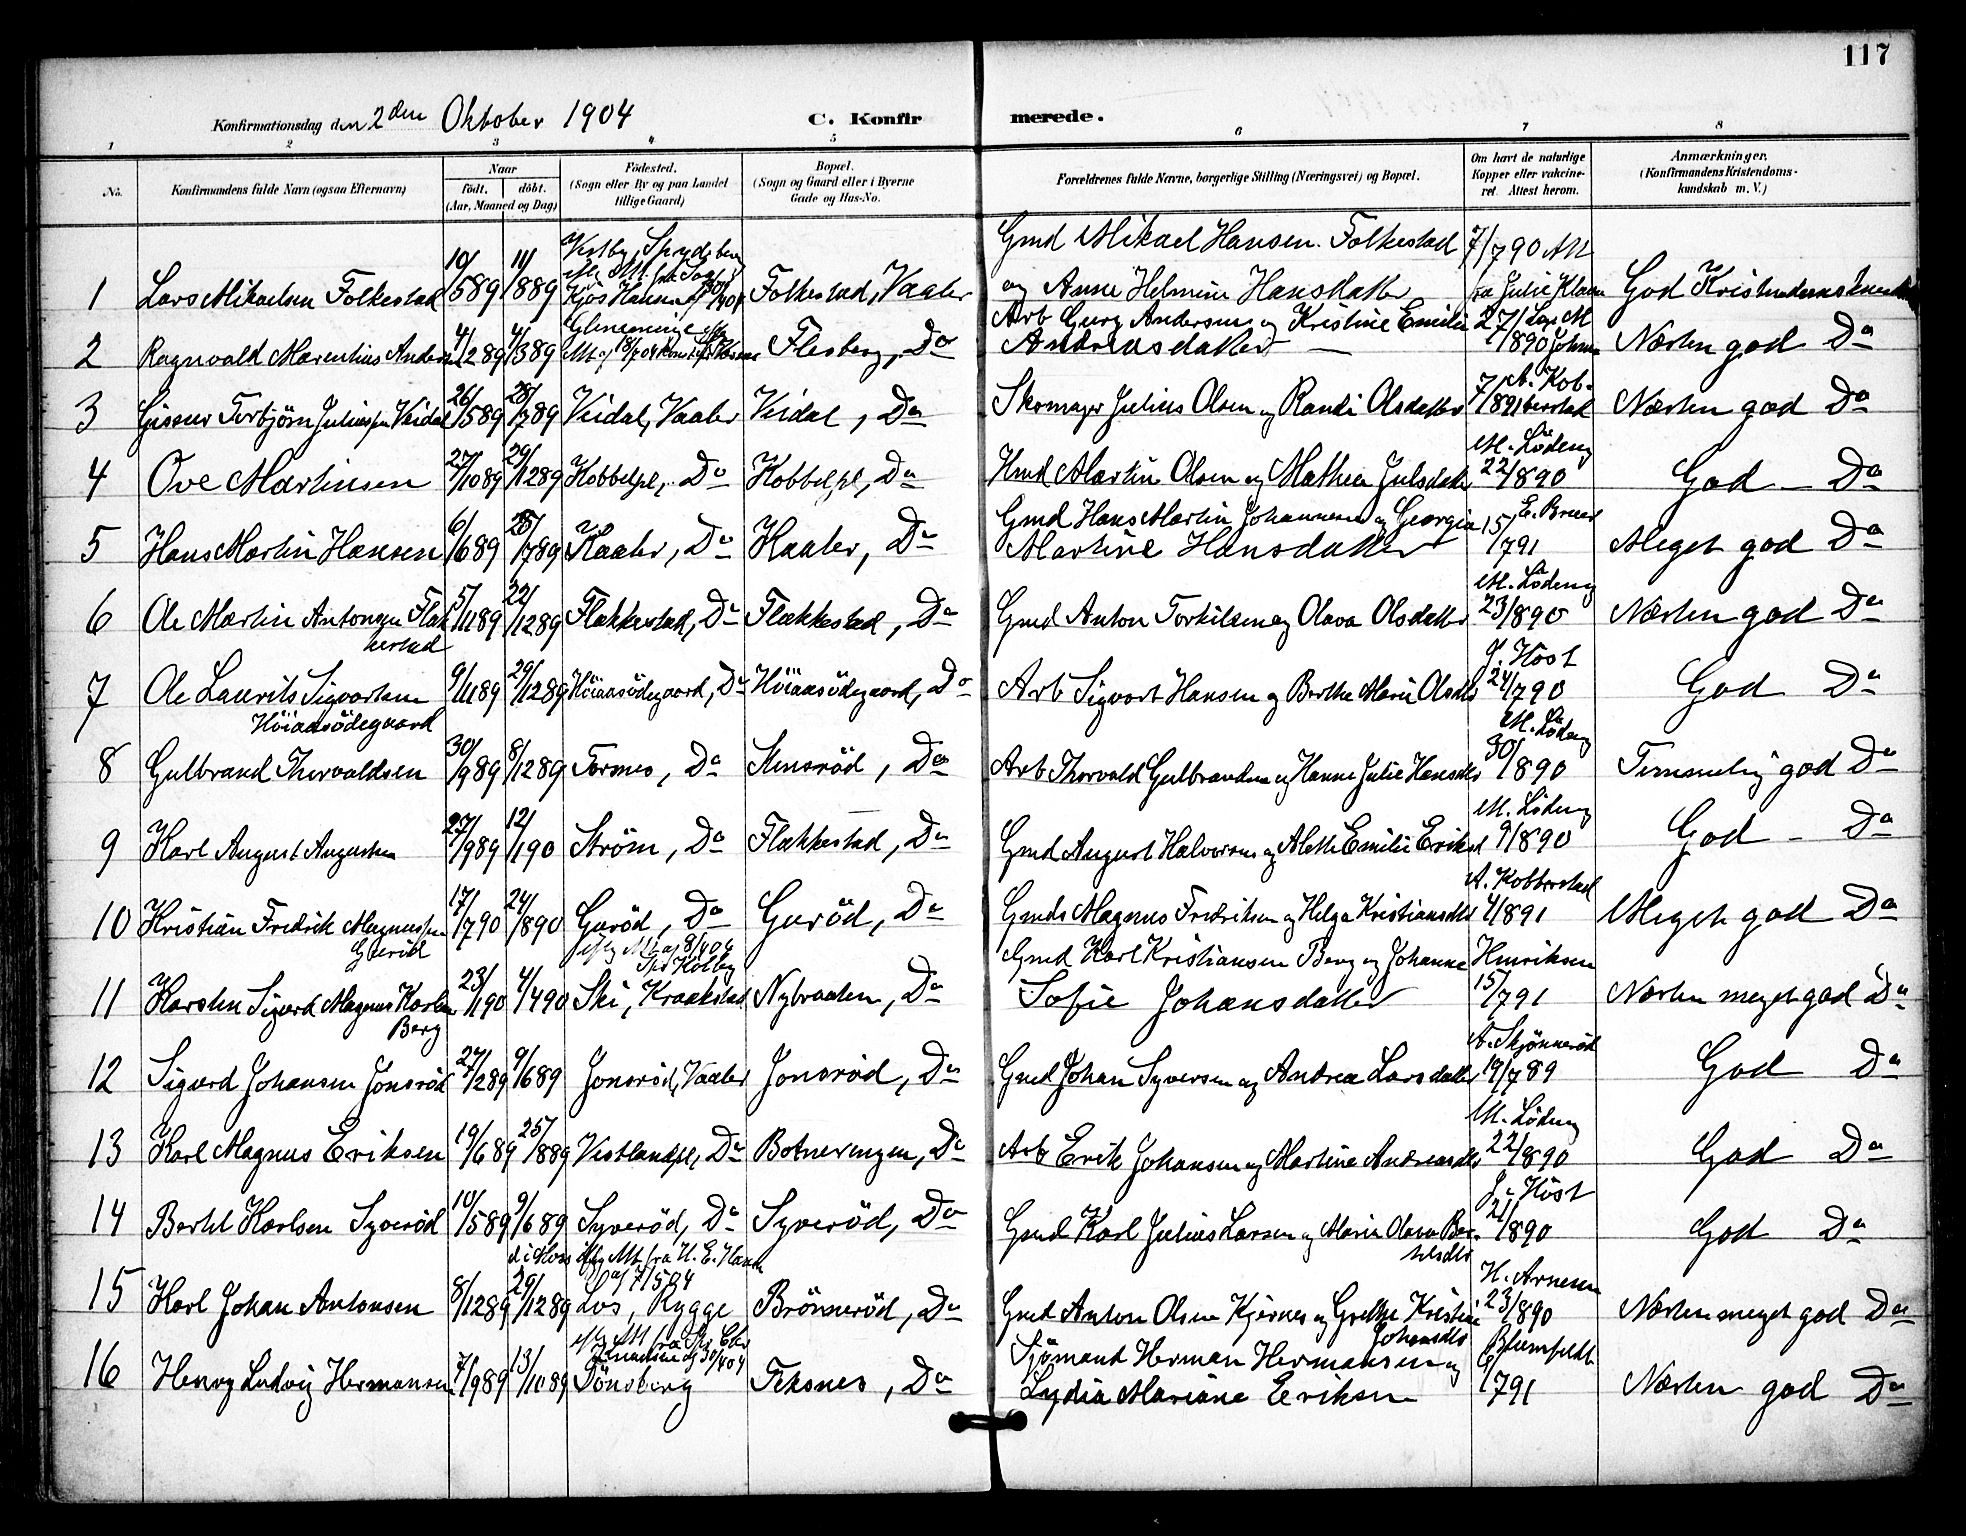 117
Konfirmationsdag den 2den Oktober 1904
C. Konfirmerede.
1 2 3 4 5 6 7 8
No. Konfirmandens fulde Navn (ogsaa Efternavn) Naar födt. döbt. (Aar, Maaned og Dag) Födested. (Sogn eller By og paa Landet tillige Gaard) Bopæl. (Sogn og Gaard eller i Byerne Gade og Hus-No. Forældrenes fulde Navne, borgerlige Stilling (Næringsvei) og Bopæl. Om havt de naturlige Kopper eller vakcineret. Attest herom. Anmærkninger. (Konfirmandens Kristendomskundskab m. V.)
1 Lars Mikaelsen Folkestad 10/589 11/889 Folkestad, Vaaler Gmd Mikael Hansen Folkestad
og Anne Helmine Hansdatter 7/790 God
2 Ragnvald Marentius Andersen 4/289 4/389 Flesberg, Do Arb Georg Andersen og Kristine Emilie
Andreasdatter 27/890 Næsten god Do
3 Gissur Torbjörn Juliussen Veidal 26/589 28/789 Veidal, Vaaler Veidal, Do Skomager Julius Olsen og Randi Olsdatter 7/891 A. Kobberstad Næsten god Do
4 Ove Martinsen 27/1089 29/1289 Kobbelpl, Do Kobbelpl, Do Hmd Martin Olsen og Mathea Julsdatter M. Lödeng 22/890 God - Do
5 Hans Martin Hansen 6/689 28/789 Kaaler, Do Kaaler, Do Gmd Hans Martin Johannesen og Georgia
Martine Hansdatter 15/791 Meget god Do
6 Ole Martin Antonsen Flakkestad 5/1189 22/1289 Flakkestad, Do Flakkestad, Do Gmd Anton Torkilsen og Olava Olsdatter M. Lödeng 23/890 Næsten god Do
7 Ole Laurits Sigvartsen
Höiaasödegaard 9/1189 29/1289 Höiaasödegaard, Do Höiaasödegaard, Do Arb Sigvart Hansen og Berthe Marie Olsdtr J. Höst 24/790 God Do
8 Gulbrand Thorvaldsen 30/989 8/1289 Tornes, Do Stensröd, Do Arb Thorvald Gulbrandsen og Hanne Julie Hansdtr M. Lödeng 30/890 Temmelig god Do
9 Karl August Augustsen 27/989 12/190 Ström, Do Flakkestad, Do Gmd August Halvorsen og Alette Emilie Eriksd M. Lödeng 9/890 God - Do
10 Kristian Fredrik Magnussen
Guröd 17/790 24/890 Guröd, Do Guröd, Do Gmds Magnus Fredriksen og Helga Kristiansdtr A. Kobberstad 4/891 Meget god Do
11 Karsten Sigurd Magnus Karlsen
Berg 23/190 4/490 Ski, Kraakstad Nybraaten, Do Gmd Karl Kristiansen Berg og Johanne
Sofie Johansdatter Henriksen 15/791 Næsten meget god Do
12 Sigurd Johansen Jonsröd 27/289 9/689 Jonsröd, Vaaler Jonsröd, Do Gmd Johan Syversen og Andrea Larsdatter A. Skjönneröd 19/789 God Do
13 Karl Magnus Eriksen 19/689 25/889 Vestlandpl, Do Botnerengen, Do Arb Erik Johansen og Martine Andreasdtr M. Lödeng 22/890 God Do
14 Bertel Karlsen Syveröd 10/589 9/689 Syveröd, Do Syveröd, Do Gmd Karl Julius Larsen og Marie Olava Bertelsdtr J. Höst 21/890 God Do
15 Karl Johan Antonsen 8/1289 29/1289 Rygge Brönneröd, Do Gmd Anton Olsen Kjörnes og Grethe Kristine
Johansdtr H. Arnesen 23/890 Næsten meget god Do
16 Henry Ludvig Hermansen 7/989 13/1089 Tönsberg Teksnes, Do Sjömand Herman Hermansen og
Lydia Mariane Eriksen 6/791 Næsten god Do